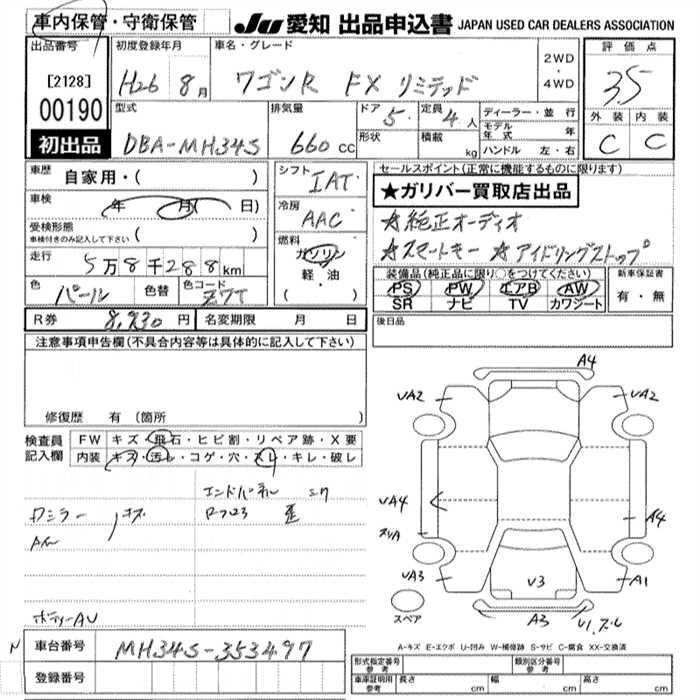 車内保管・守衛保管
JU 愛知 出品申込書 JAPAN USED CAR DEALERS ASSOCIATION
出品番号 初度登録年月 車名・グレード 2WD・4WD 評価点
[2128] H26 8月 ワゴンR FX リミテッド 3.5
00190 型式 排気量 ドア 5 定員 4人 ディーラー・並行 外装 内装
形状 積載 kg モデル年式 年 C C
初出品 DBA-MH34S 660cc ハンドル 左・右
車歴 自家用・( ) シフト IAT セールスポイント(正常に機能するものに限ります)
★ガリバー買取店出品
車検 年 月( 日) 冷房 AAC ☆純正オーディオ
受検形態 車検付きのみ記入して下さい ( ) 燃料 ガソリン 軽・油 ( ) ☆スマートキー ☆アイドリングストップ
走行 5万8千288km 装備品(純正品に限り○をつけてください) 新車保証書
色 パール 色替 色コード Z7T PS PW エアB AW 有・無
SR ナビ TV カワシート
R券 8,930円 名変期限 月 日 後日品
注意事項申告欄(不具合内容等は具体的に記入して下さい)
修復歴 有 (箇所 )
検査員記入欄 FW キズ・飛石・ヒビ割・リペア跡・X要
内装 キズ・汚レ・コゲ・穴・スレ・キレ・破レ
エンドパネル
歪
ボディーAU
A4
UA2 UA2
UA4 A4
スリA
UA3 V3 A1
スペア A3
A-キズ E-エクボ U-凹み W-補修跡 S-サビ C-腐食 XX-交換済
車台番号 MH34S-353497
登録番号
型式指定番号 参考 類別区分番号 参考
車庫証明用 参考 長さ cm 幅 cm 高さ cm